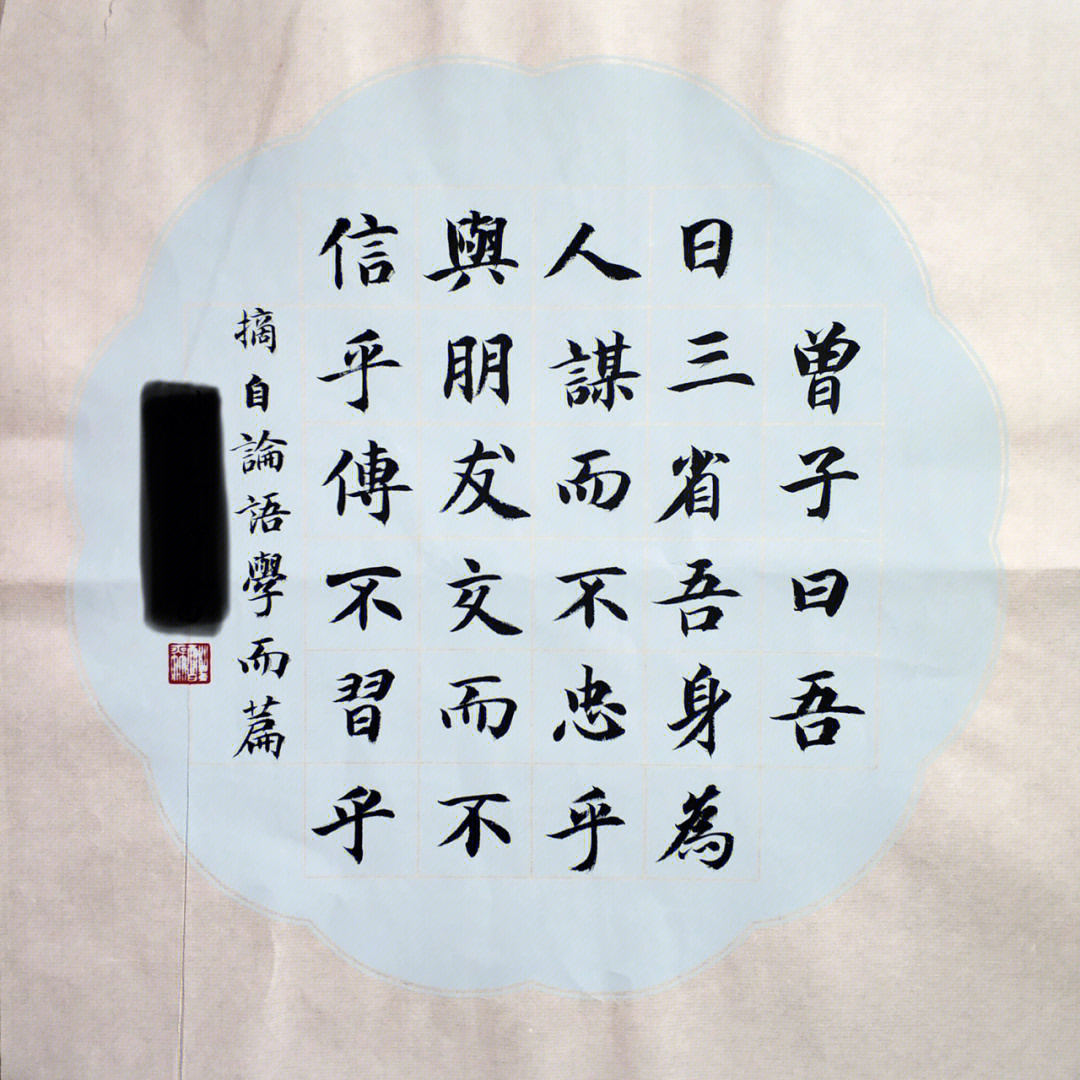 曾子曰吾
日三省吾身為
人謀而不忠乎
與朋友交而不
信乎傳不習乎
摘自論語學而篇